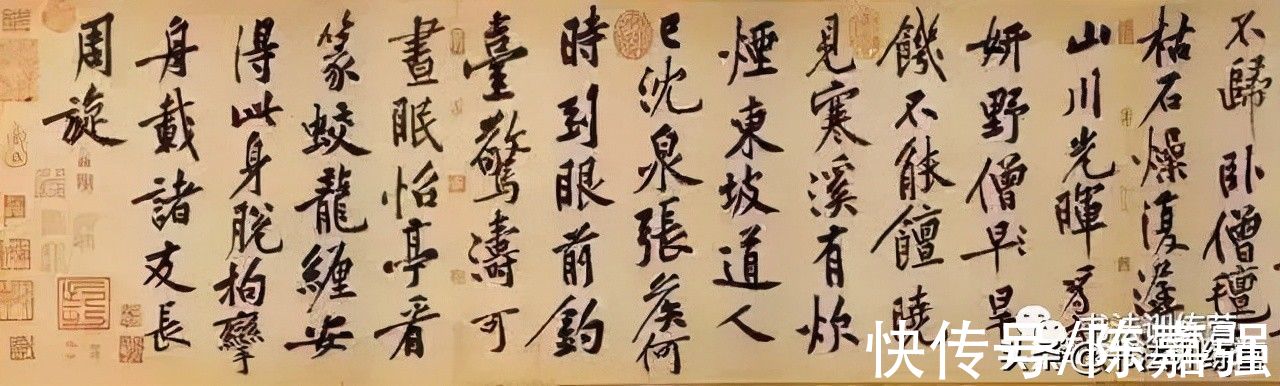 不歸卧僧氈
枯石燥復潺
山川光暉為
妍野僧早〻旱
饑不能饘曉
見寒溪有炊
煙東坡道人
已沈泉張侯何
時到眼前釣
臺驚濤可
晝眠怡亭看
篆蛟龍纏安
得此身脫拘攣
舟載諸友長
周旋
快传号/陈嘉强